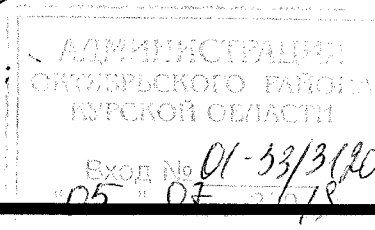 АДМИНИСТРАЦИЯ
ОКТЯБРЬСКОГО РАЙОНА
КУРСКОЙ ОБЛАСТИ
Вход № 01-33/3120
"05" 07 2018